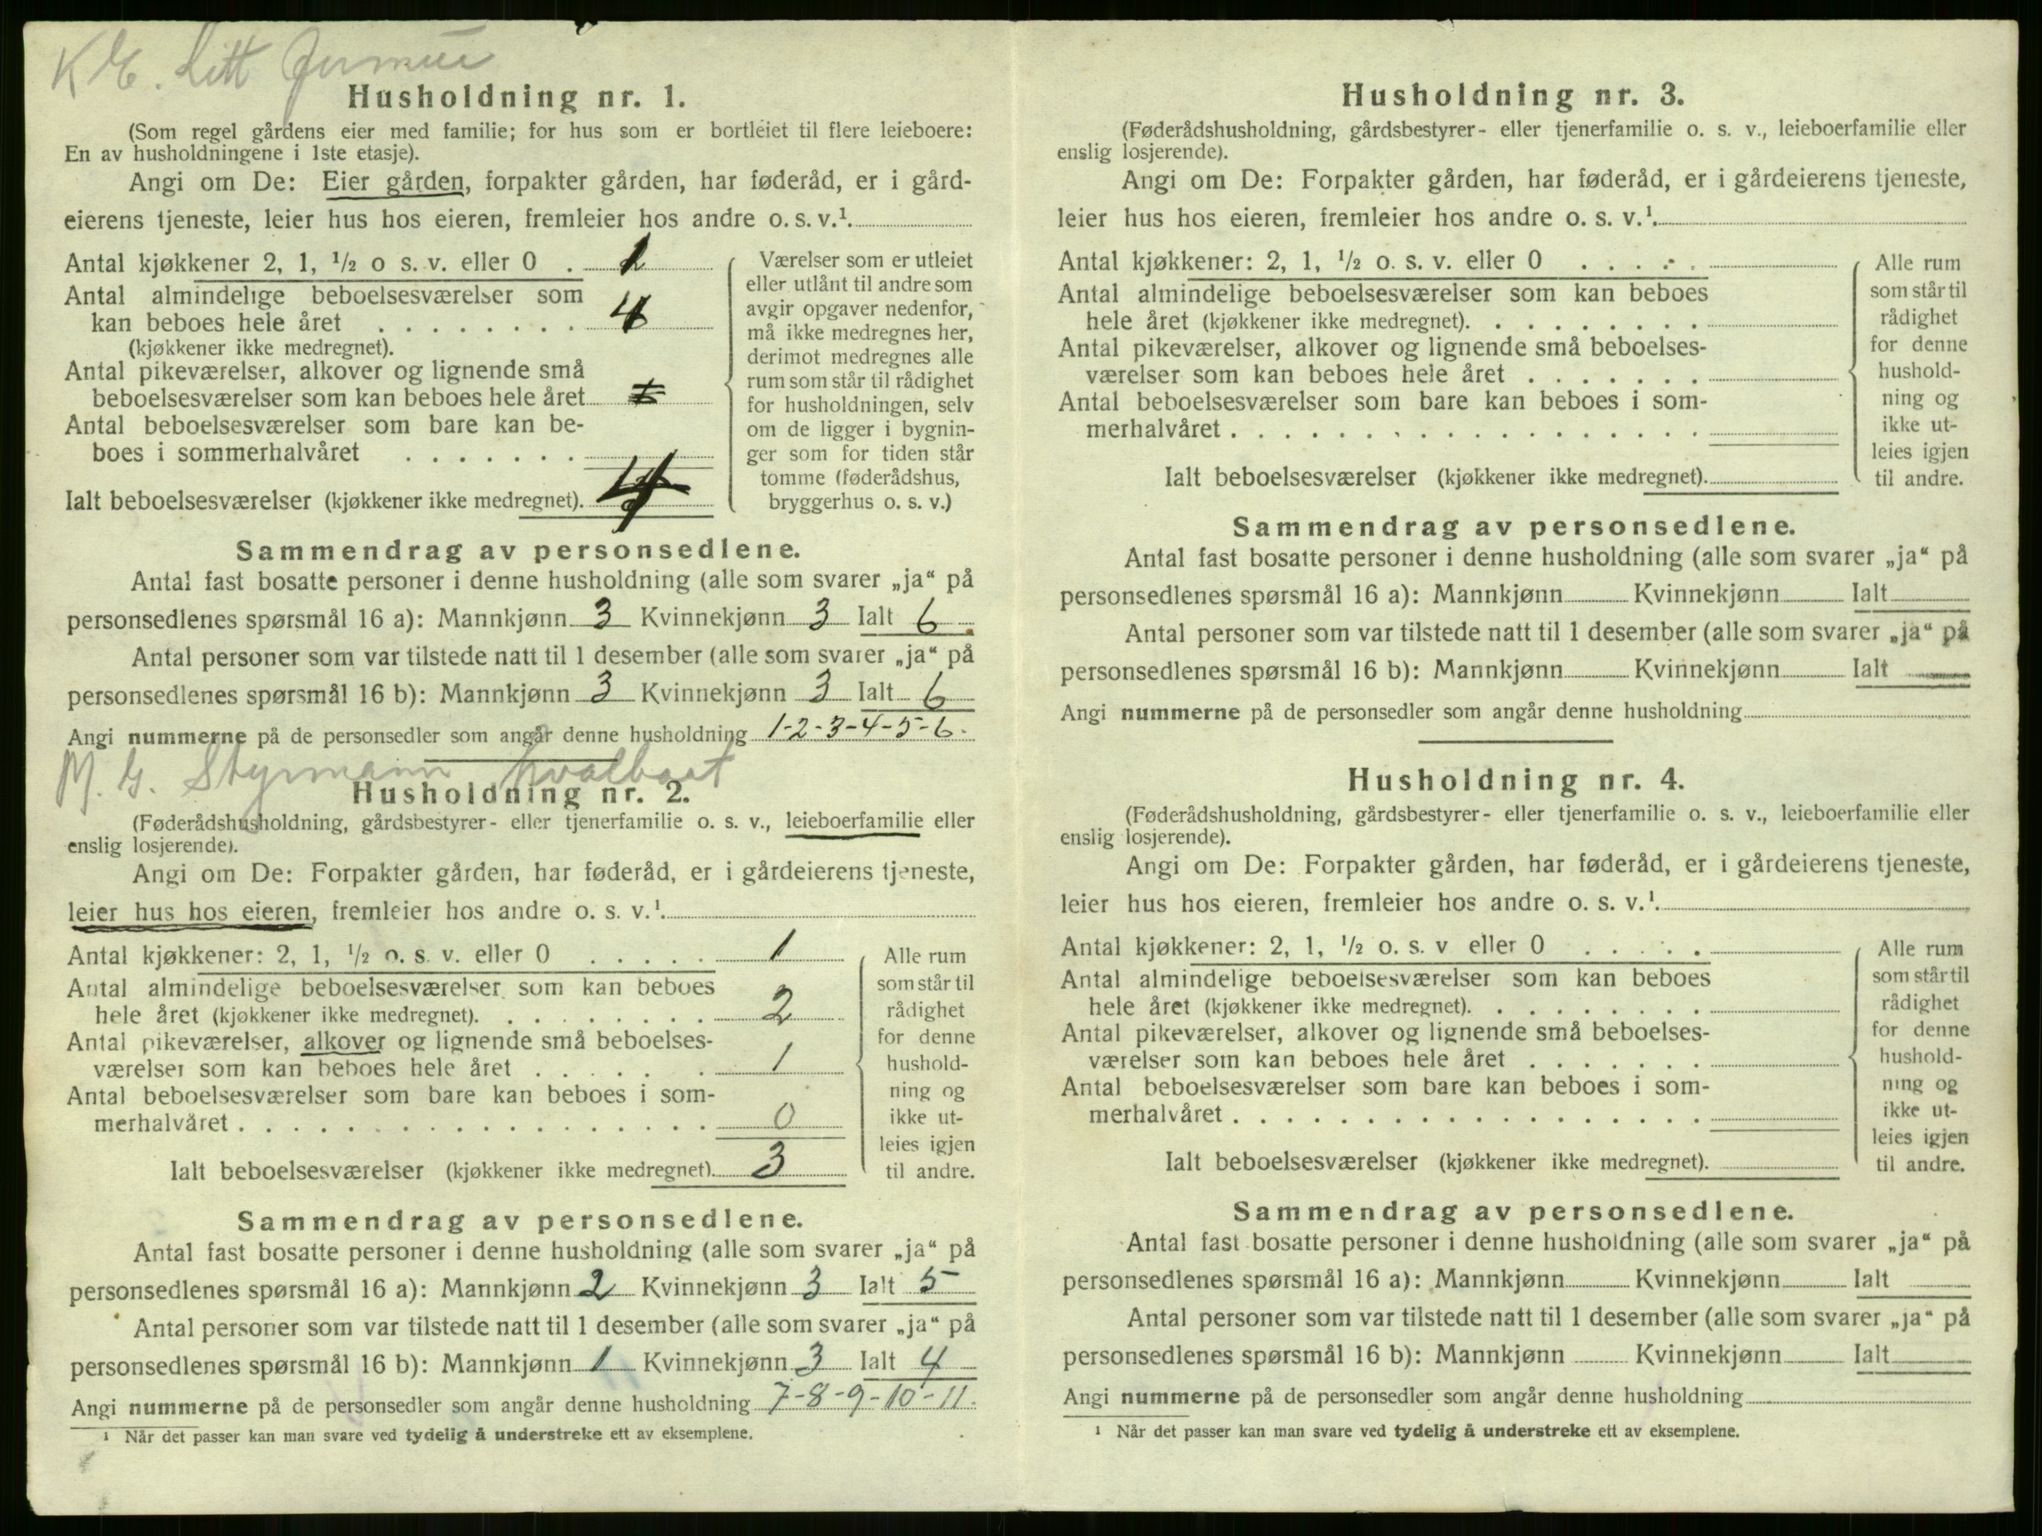 K E. Litt
Husholdning nr. 1.
(Som regel gårdens eier med familie; for hus som er bortleiet til flere leieboere:
En av husholdningene i 1ste etasje).
Angi om De: Eier gården, forpakter gården, har føderåd, er i gård-
eierens tjeneste, leier hus hos eieren, fremleier hos andre o. s. v.¹
Antal kjøkkener 2, 1, ½ o s. v. eller 0 . 1
Antal almindelige beboelsesværelser som
kan beboes hele året . . . . . . . . 4
(kjøkkener ikke medregnet).
Antal pikeværelser, alkover og lignende små
beboelsesværelser som kan beboes hele året
Antal beboelsesværelser som bare kan be-
boes i sommerhalvåret . . . . . . .
Ialt beboelsesværelser (kjøkkener ikke medregnet). 4
Værelser som er utleiet
eller utlånt til andre som
avgir opgaver nedenfor,
må ikke medregnes her,
derimot medregnes alle
rum som står til rådighet
for husholdningen, selv
om de ligger i bygnin-
ger som for tiden står
tomme (føderådshus,
bryggerhus o. s. v.)
Sammendrag av personsedlene.
Antal fast bosatte personer i denne husholdning (alle som svarer „ja“ på
personsedlenes spørsmål 16 a): Mannkjønn 3 Kvinnekjønn 3 Ialt 6.
Antal personer som var tilstede natt til 1 desember (alle som svarer „ja“ på
personsedlenes spørsmål 16 b): Mannkjønn 3 Kvinnekjønn 3 Ialt 6
Angi nummerne på de personsedler som angår denne husholdning 1-2-3-4-5-6.
M. G. Styrmann hvalbaat
Husholdning nr. 2.
(Føderådshusholdning, gårdsbestyrer- eller tjenerfamilie o. s. v., leieboerfamilie eller
enslig losjerende).
Angi om De: Forpakter gården, har føderåd, er i gårdeierens tjeneste,
leier hus hos eieren, fremleier hos andre o. s. v.¹
Antal kjøkkener: 2, 1, ½ o. s. v. eller 0 . . . . . 1
Antal almindelige beboelsesværelser som kan beboes
hele året (kjøkkener ikke medregnet). . . . . . . . . 2
Antal pikeværelser, alkover og lignende små beboelses-
værelser som kan beboes hele året . . . . . . . 1
Antal beboelsesværelser som bare kan beboes i som-
merhalvåret . . . . . . . . . . . . . . . . . . 0
Ialt beboelsesværelser (kjøkkener ikke medregnet). 3
Alle rum
som står til
rådighet
for denne
hushold-
ning og
ikke ut-
leies igjen
til andre.
Sammendrag av personsedlene.
Antal fast bosatte personer i denne husholdning (alle som svarer „ja“ på
personsedlenes spørsmål 16 a): Mannkjønn 2 Kvinnekjønn 3 Ialt 5
Antal personer som var tilstede natt til 1 desember (alle som svarer „ja“ på
personsedlenes spørsmål 16 b): Mannkjønn 1 Kvinnekjønn 3 Ialt 4
Angi nummerne på de personsedler som angår denne husholdning 7-8-9-10-11.
¹ Når det passer kan man svare ved tydelig å understreke ett av eksemplene.
Husholdning nr. 3.
(Føderådshusholdning, gårdsbestyrer- eller tjenerfamilie o. s. v., leieboerfamilie eller
enslig losjerende).
Angi om De: Forpakter gården, har føderåd, er i gårdeierens tjeneste,
leier hus hos eieren, fremleier hos andre o. s. v.¹
Antal kjøkkener: 2, 1, ½ o. s. v. eller 0 . . . . .
Antal almindelige beboelsesværelser som kan beboes
hele året (kjøkkener ikke medregnet). . . . . . . . .
Antal pikeværelser, alkover og lignende små beboelses-
værelser som kan beboes hele året . . . . . . .
Antal beboelsesværelser som bare kan beboes i som-
merhalvåret . . . . . . . . . . . . . . . . . .
Ialt beboelsesværelser (kjøkkener ikke medregnet).
Alle rum
som står til
rådighet
for denne
hushold-
ning og
ikke ut-
leies igjen
til andre.
Sammendrag av personsedlene.
Antal fast bosatte personer i denne husholdning (alle som svarer „ja“ på
personsedlenes spørsmål 16 a): Mannkjønn Kvinnekjønn Ialt
Antal personer som var tilstede natt til 1 desember (alle som svarer „ja“ på
personsedlenes spørsmål 16 b): Mannkjønn Kvinnekjønn Ialt
Angi nummerne på de personsedler som angår denne husholdning
Husholdning nr. 4.
(Føderådshusholdning, gårdsbestyrer- eller tjenerfamilie o. s. v., leieboerfamilie eller
enslig losjerende).
Angi om De: Forpakter gården, har føderåd, er i gårdeierens tjeneste,
leier hus hos eieren, fremleier hos andre o. s. v.¹
Antal kjøkkener: 2, 1, ½ o. s. v eller 0 . . . . .
Antal almindelige beboelsesværelser som kan beboes
hele året (kjøkkener ikke medregnet). . . . . . . . .
Antal pikeværelser, alkover og lignende små beboelses-
værelser som kan beboes hele året . . . . . . .
Antal beboelsesværelser som bare kan beboes i som-
merhalvåret . . . . . . . . . . . . . . . . . .
Ialt beboelsesværelser (kjøkkener ikke medregnet).
Alle rum
som står til
rådighet
for denne
hushold-
ning og
ikke ut-
leies igjen
til andre.
Sammendrag av personsedlene.
Antal fast bosatte personer i denne husholdning (alle som svarer „ja“ på
personsedlenes spørsmål 16 a): Mannkjønn Kvinnekjønn Ialt
Antal personer som var tilstede natt til 1 desember (alle som svarer „ja“ på
personsedlenes spørsmål 16 b): Mannkjønn Kvinnekjønn Ialt
Angi nummerne på de personsedler som angår denne husholdning
¹ Når det passer kan man svare ved tydelig å understreke ett av eksemplene.